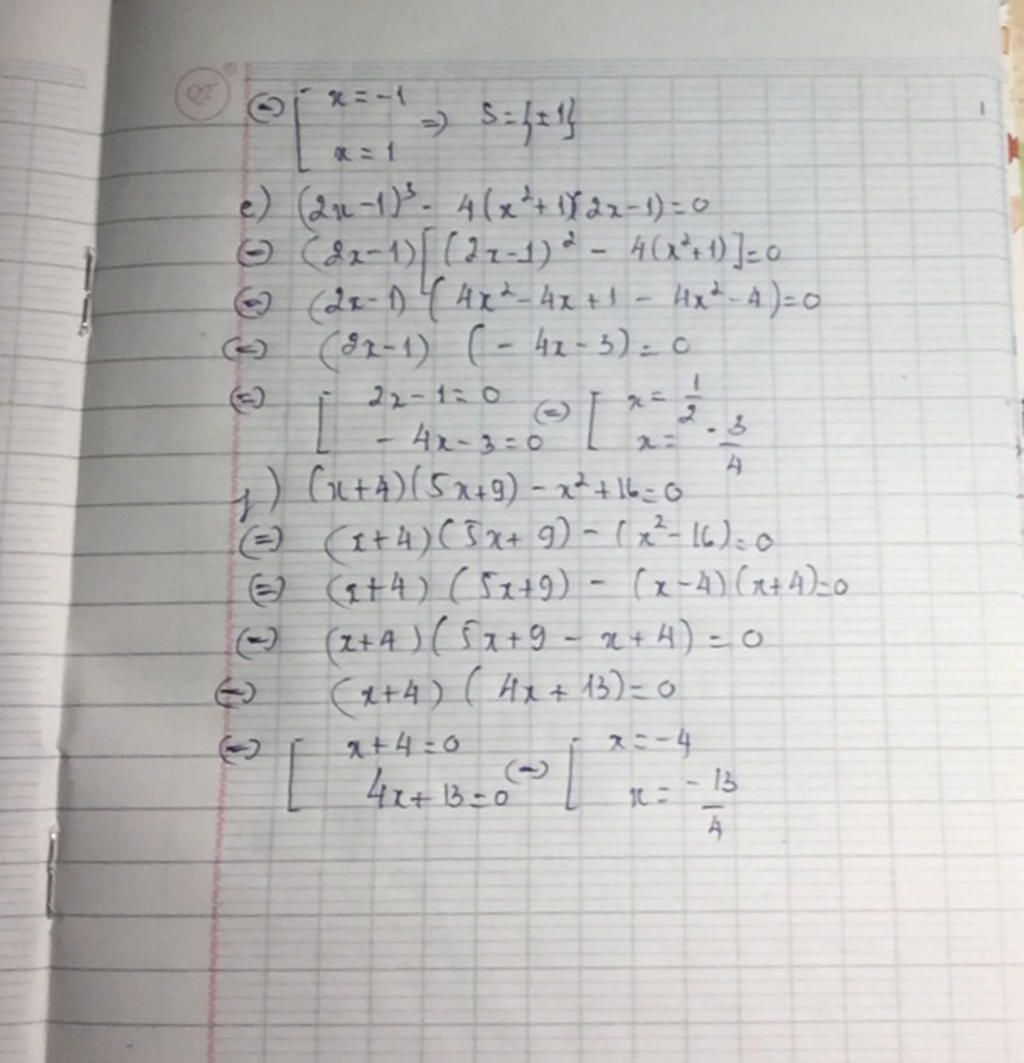 QT
⇔ [ x = -1
x = 1 ⇒ S = {±1}
e) (2x-1)³ - 4(x²+1)(2x-1) = 0
⇔ (2x-1)[(2x-1)² - 4(x²+1)] = 0
⇔ (2x-1)(4x² - 4x + 1 - 4x² - 4) = 0
⇔ (2x-1) (- 4x - 3) = 0
⇔ [ 2x - 1 = 0 ⇔ [ x = 1/2
- 4x - 3 = 0 x = -3/4
f) (x+4)(5x+9) - x² + 16 = 0
⇔ (x+4)(5x+9) - (x² - 16) = 0
⇔ (x+4)(5x+9) - (x-4)(x+4) = 0
⇔ (x+4)(5x+9 - x + 4) = 0
⇔ (x+4)(4x + 13) = 0
⇔ [ x+4 = 0 ⇔ [ x = -4
4x + 13 = 0 x = -13/4